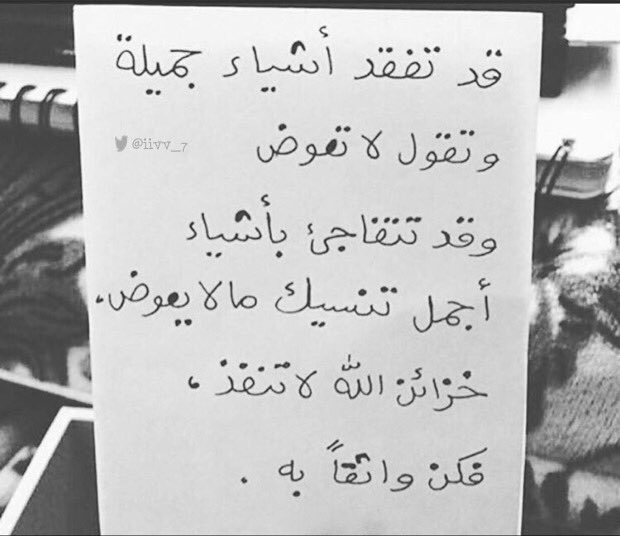 قد تفقد أشياء جميلة
وتقول لا تعوض
@iivv_7
وقد تتفاجئ بأشياء
أجمل تنسيك مالا يعوض،
خزائن الله لا تنفذ،
فكن واثقاً به.